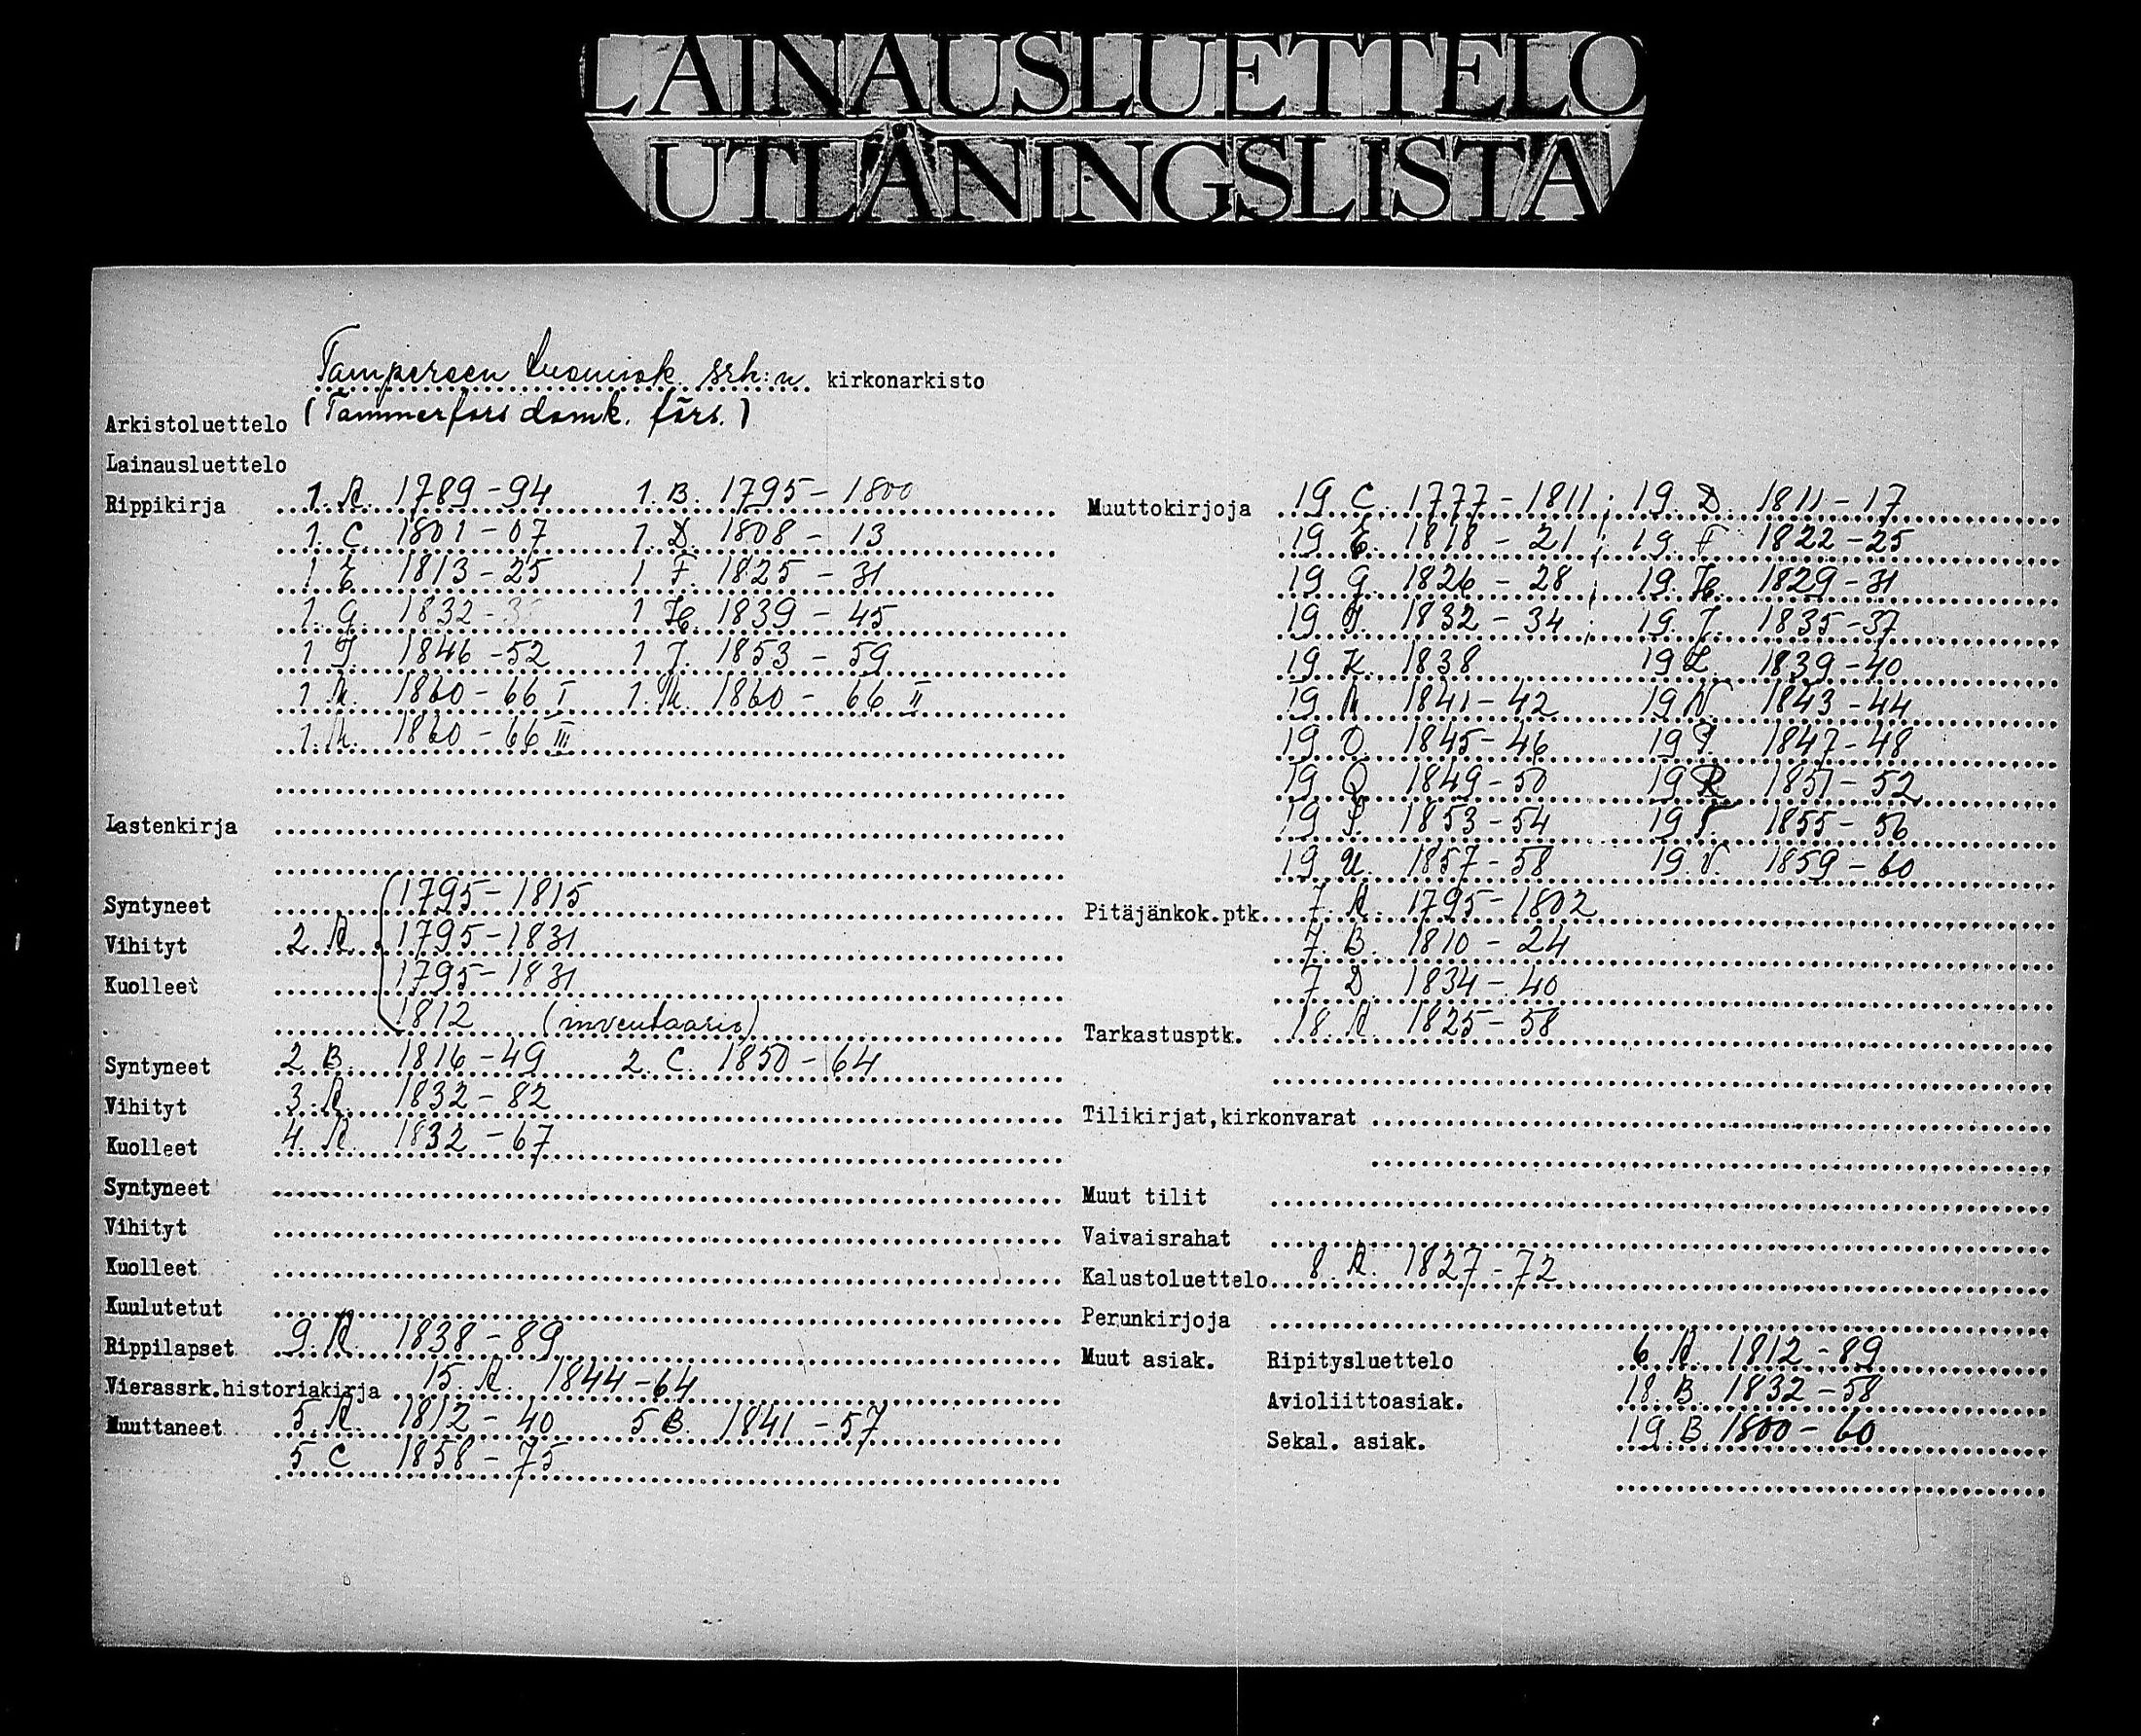 LAINAUSLUETTELO
UTLÅNINGSLISTA
Tampereen tuomiok. srh:n kirkonarkisto
Arkistoluettelo (Tammerfors domk. förs.)
Lainausluettelo
Rippikirja 1. A. 1789-94 1. B. 1795-1800
1. C. 1801-07 1. D. 1808-13
1 E 1813-25 1 F. 1825-31
1. G. 1832- 1 H. 1839-45
1 I. 1846-52 1 J. 1853-59
1. K. 1860-66 I 1. K. 1860-66 II
1. K. 1860-66 III
Lastenkirja
Syntyneet 1795-1815
Vihityt 2. A. 1795-1831
Kuolleet 1795-1831
1812 (inventaario)
Syntyneet 2 B. 1816-49 2. C. 1850-64
Vihityt 3. A. 1832-82
Kuolleet 4. A. 1832-67
Syntyneet
Vihityt
Kuolleet
Kuulutetut
Rippilapset 9. A. 1838-89
Vierassrk.historiakirja 15. A. 1844-64
Muuttaneet 5. A. 1812-40 5 B. 1841-57
5 C 1858-75
Muuttokirjoja 19 C. 1777-1811; 19. D. 1811-17
19 E. 1818-21; 19. F 1822-25
19 G. 1826-28; 19. H. 1829-31
19 I. 1832-34; 19. J. 1835-37
19 K. 1838 19 L. 1839-40
19 M 1841-42 19 N. 1843-44
19 O. 1845-46 19 P. 1847-48
19 Q 1849-50 19 R 1851-52
19 S. 1853-54 19 T. 1855-56
19 U. 1857-58 19. V. 1859-60
Pitäjänkok.ptk. 7. A. 1795-1802
7. B. 1810-24
7 D. 1834-40
Tarkastusptk. 18. A. 1825-58
Tilikirjat,kirkonvarat
Muut tilit
Vaivaisrahat
Kalustoluettelo 8. A. 1827-72
Perunkirjoja
Muut asiak. Ripitysluettelo 6 A. 1812-89
Avioliittoasiak. 18. B. 1832-58
Sekal. asiak. 19. B. 1800-60